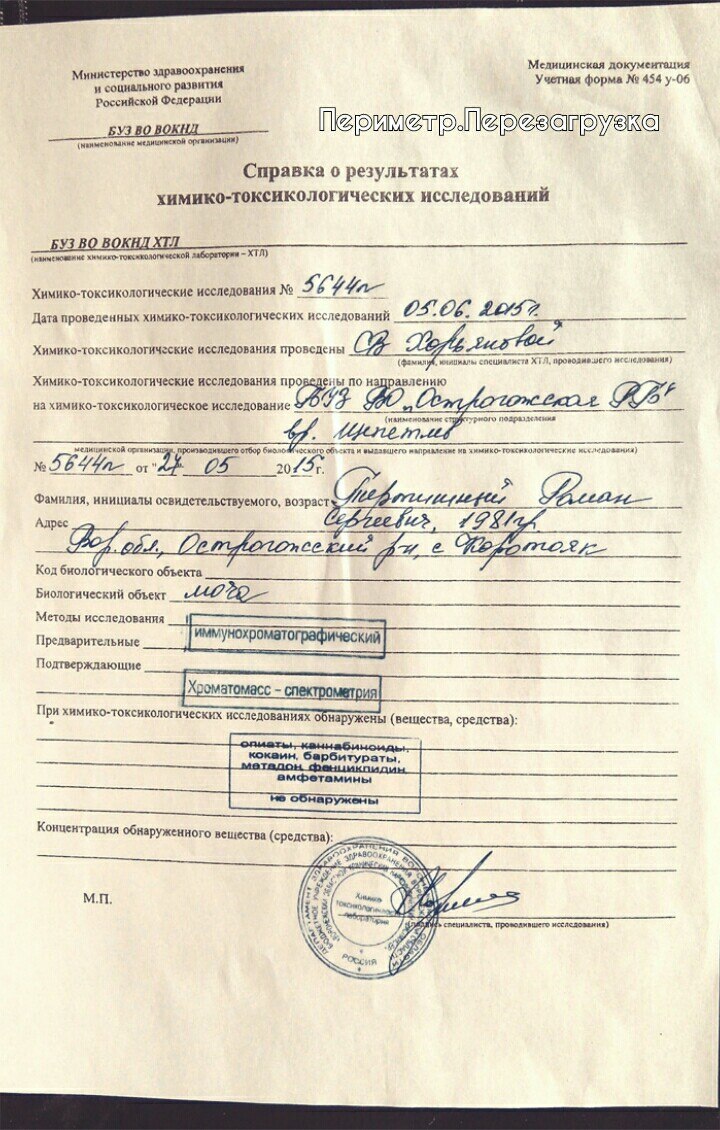 Министерство здравоохранения
и социального развития
Российской Федерации
Медицинская документация
Учетная форма № 454 у-06
Периметр.Перезагрузка
БУЗ ВО ВОКНД
(наименование медицинской организации)
Справка о результатах
химико-токсикологических исследований
БУЗ ВО ВОКНД ХТЛ
(наименование химико-токсикологической лаборатории – ХТЛ)
Химико-токсикологические исследования № 5644л
Дата проведенных химико-токсикологических исследований 05.06.2015г.
Химико-токсикологические исследования проведены СВ
(фамилия, инициалы специалиста ХТЛ, проводившего исследования)
Химико-токсикологические исследования проведены по направлению
на химико-токсикологическое исследование БУЗ ВО „Острогожская РБ"
(наименование структурного подразделения
вр.
медицинской организации, производившего отбор биологического объекта и выдавшего направление на химико-токсикологические исследования)
№ 5644л от "27" 05 2015г.
Фамилия, инициалы освидетельствуемого, возраст Роман
Сергеевич, 1981гр
Адрес
Вор.обл., Острогожский р-н, с Коротояк
Код биологического объекта
Биологический объект моча
Методы исследования
Предварительные иммунохроматографический
Подтверждающие
Хроматомасс – спектрометрия
При химико-токсикологических исследованиях обнаружены (вещества, средства):
опиаты, каннабиноиды,
кокаин, барбитураты,
метадон, фенциклидин,
амфетамины
не обнаружены
Концентрация обнаруженного вещества (средства):
М.П.
Химико-
токсикологическая
лаборатория
РОССИЯ
(подпись специалиста, проводившего исследования)